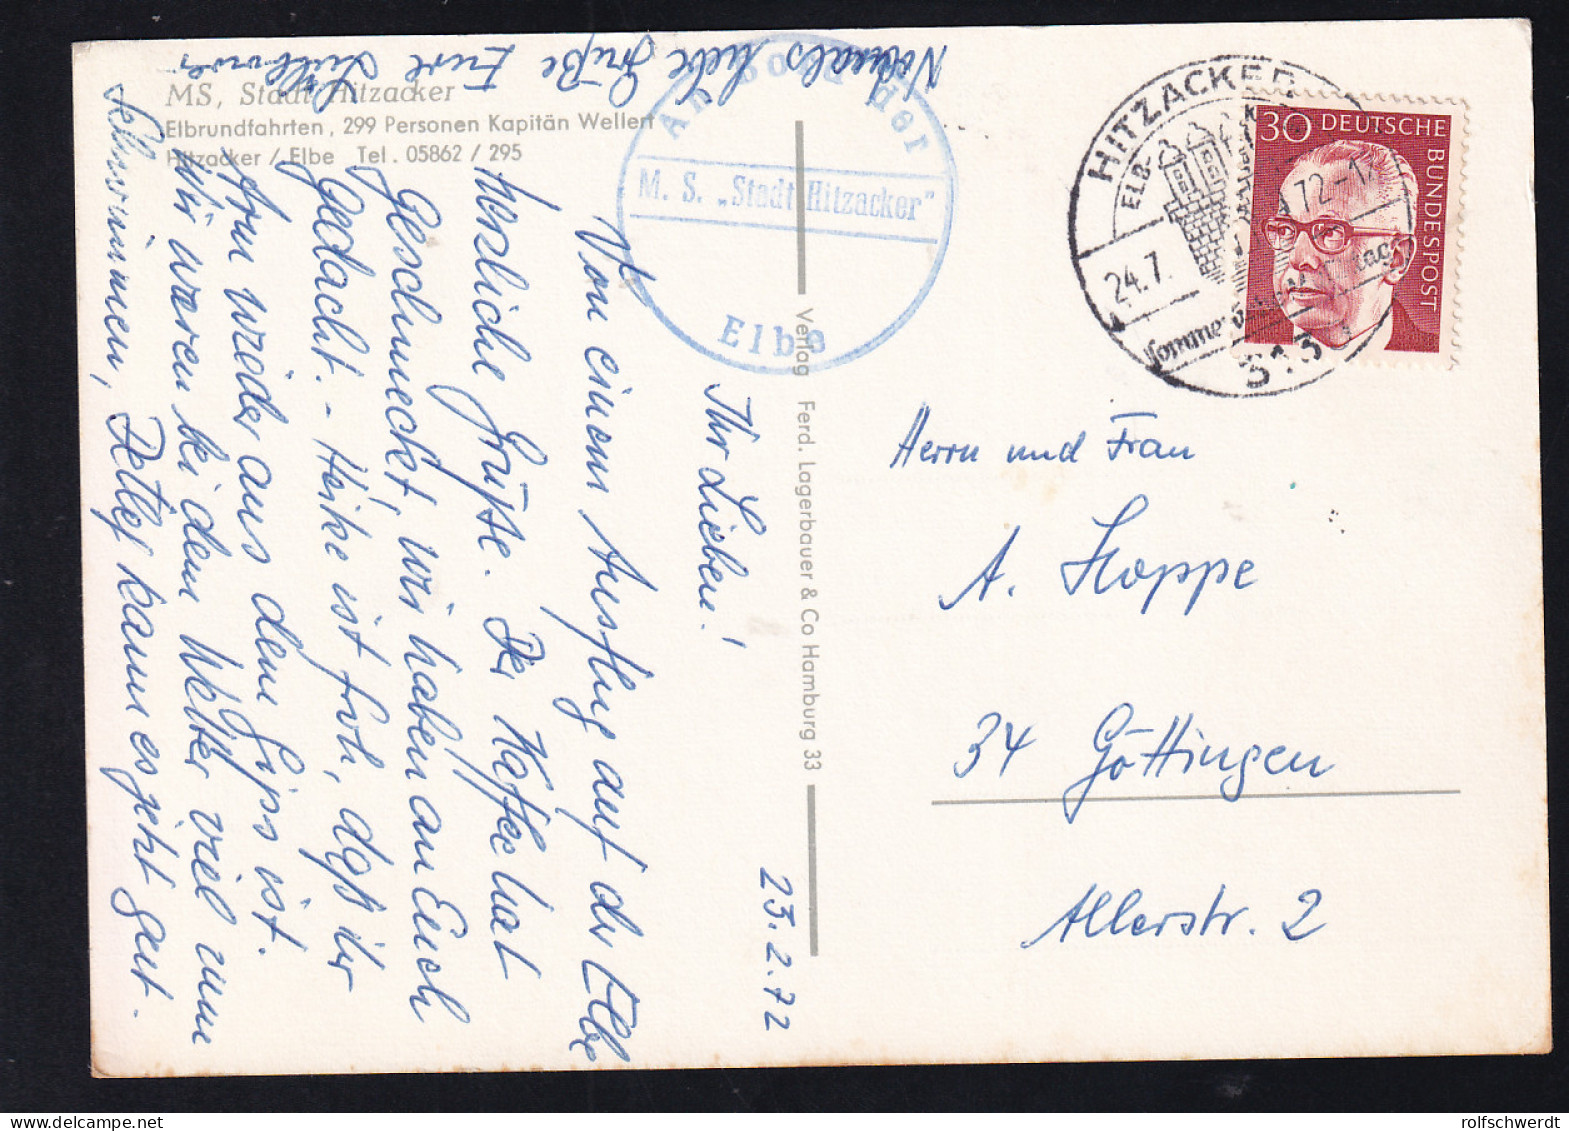 MS, Stadt Hitzacker
Elbrundfahrten, 299 Personen Kapitän Wellert
Hitzacker / Elbe Tel. 05862 / 295
An Bord der
M. S. „Stadt Hitzacker"
Elbe
HITZACKER
ELB-
24.7.
72-1
Sommer
313
30 DEUTSCHE
BUNDESPOST
Verlag Ferd. Lagerbauer & Co Hamburg 33
23.2.72
Ihr Lieben!
Von einem Ausflug auf der Elbe
herzliche Grüße. Der Kaffee hat
geschmeckt, wir haben an Euch
gedacht. - Heike ist froh, daß ihr
Arm wieder aus dem Gips ist.
Wir waren bei dem Wetter viel zum
Schwimmen, Detlef kann es jetzt gut.
Nochmals liebe Grüße Eure
Herrn und Frau
A. Hoppe
34 Göttingen
Allerstr. 2
rolfschwerdt